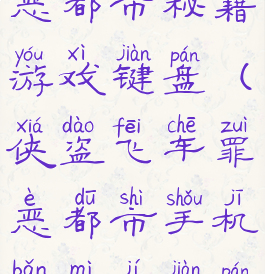 恶都市秘籍
yóu xì jiàn pán
游戏键盘（
xiá dào fēi chē zuì
侠盗飞车罪
è dū shì shǒu jī
恶都市手机
bǎn mì jí jiàn pán